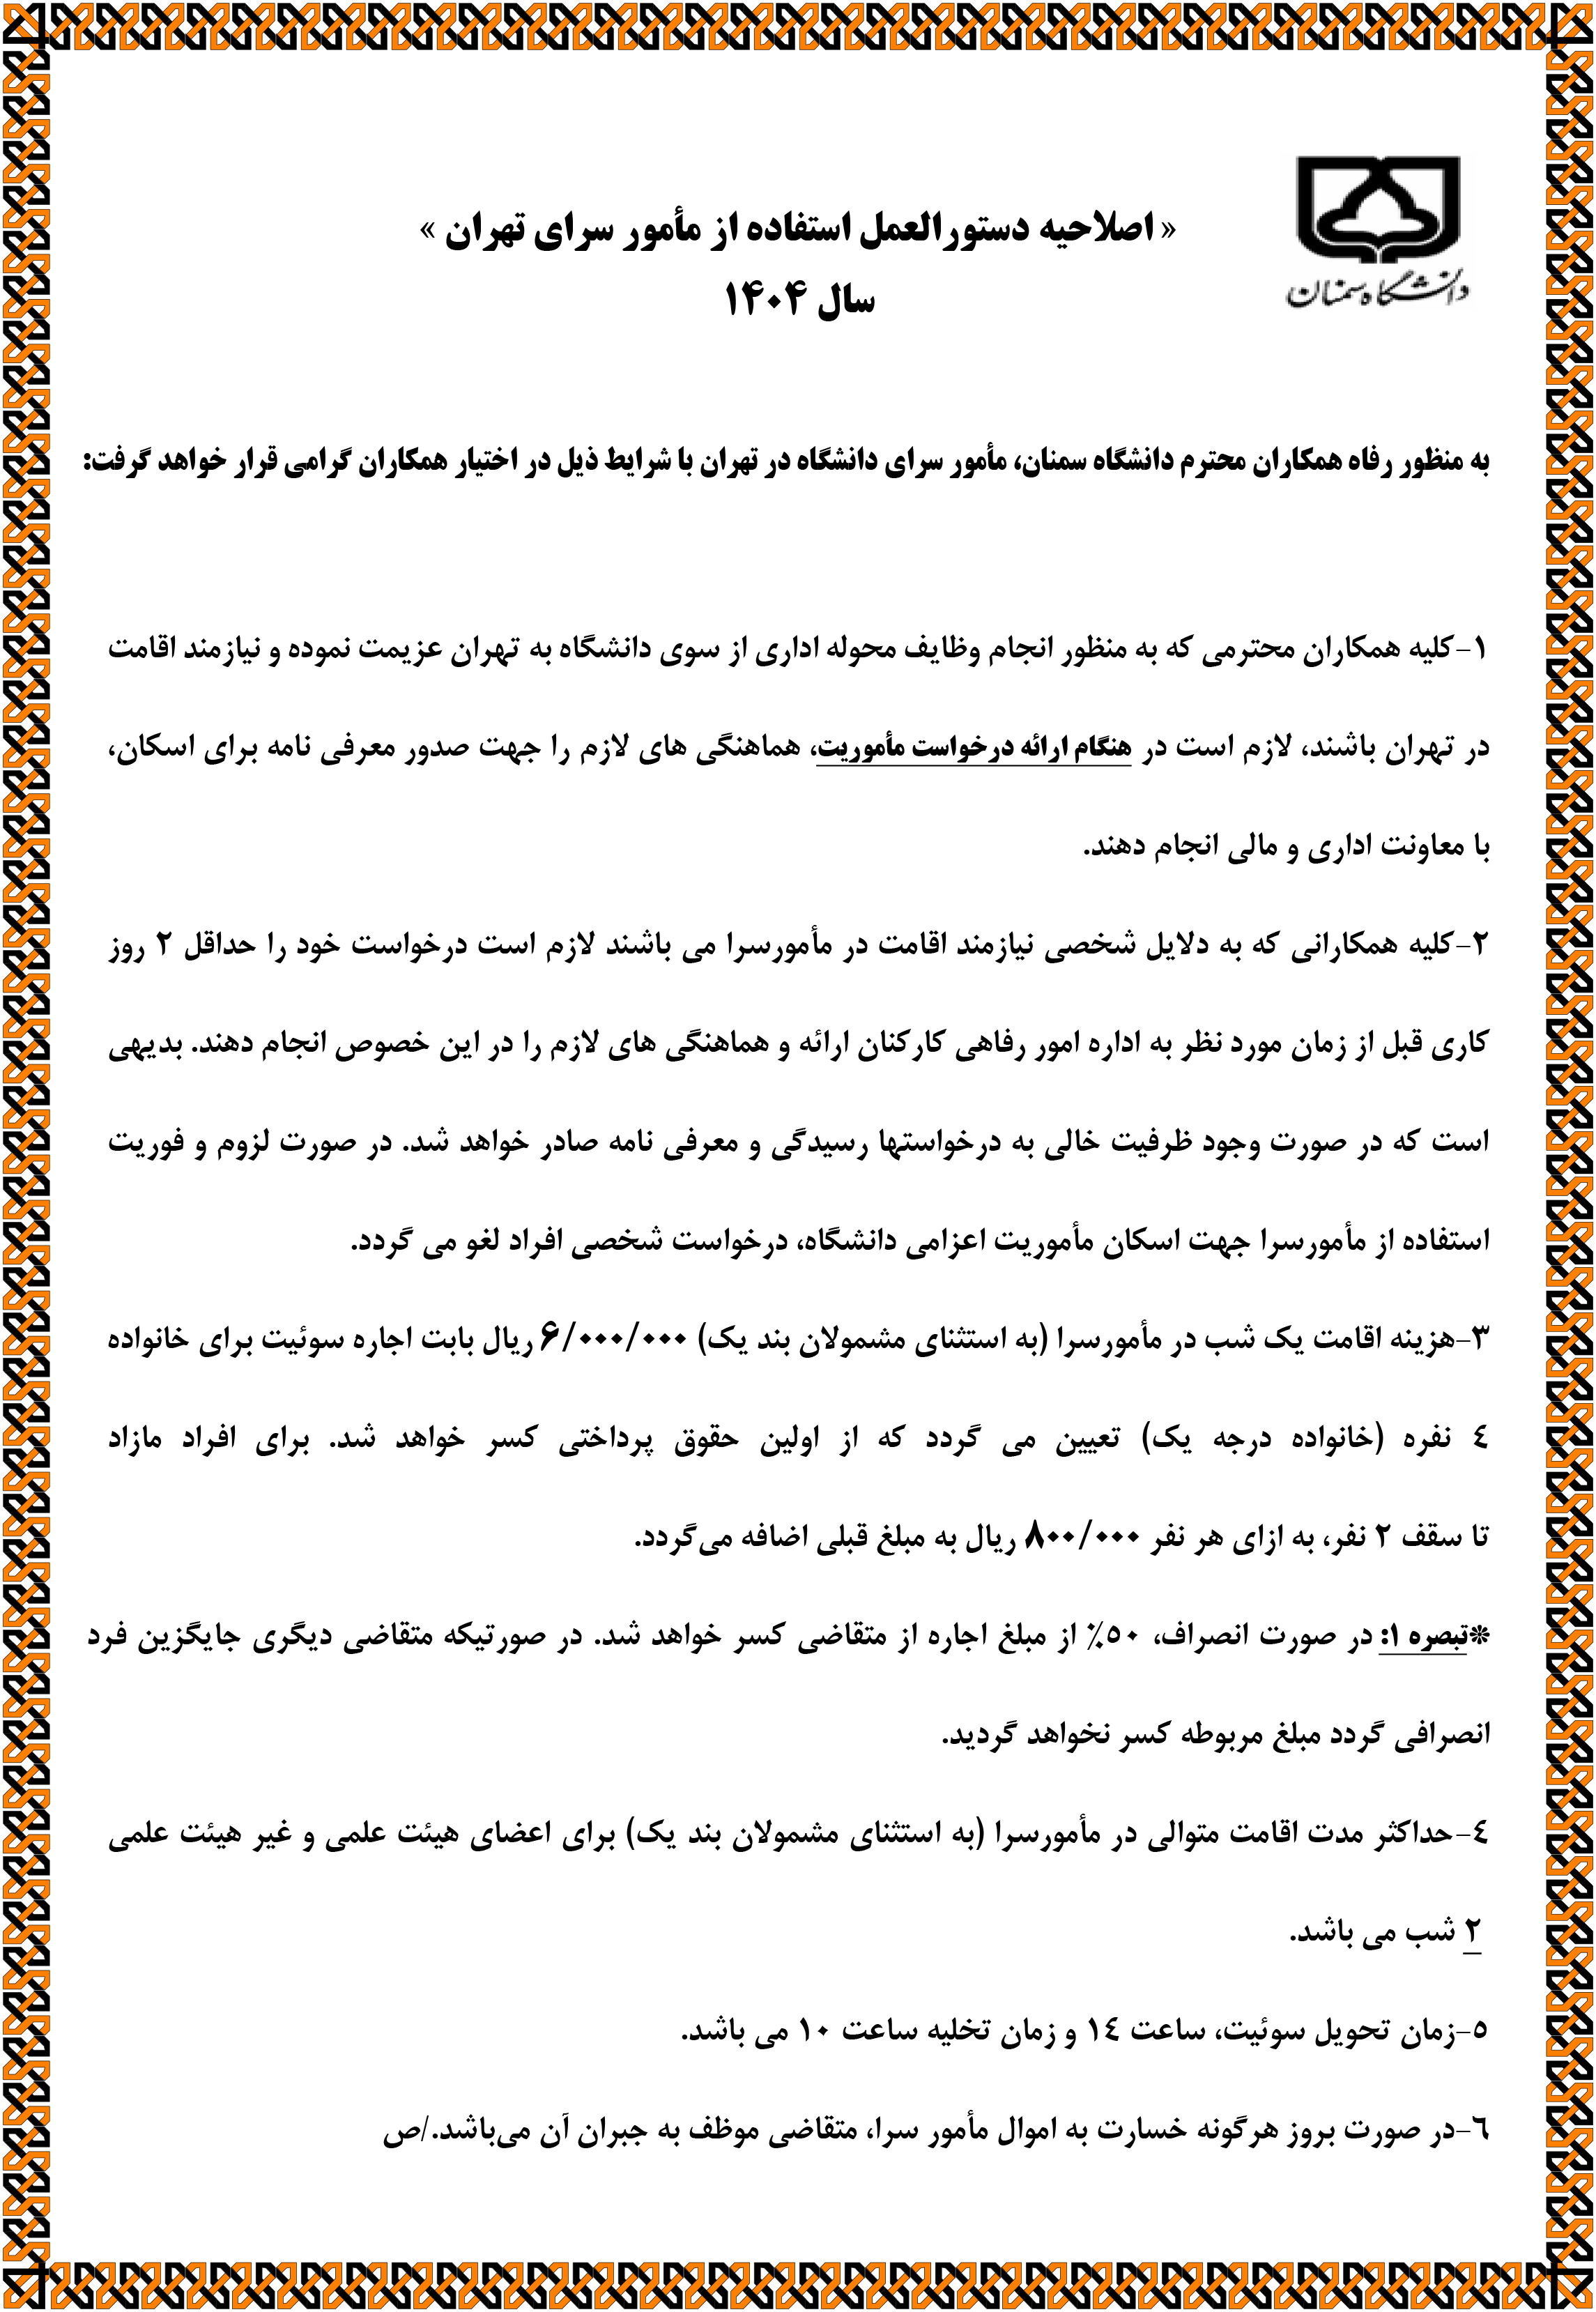 دانشگاه سمنان
« اصلاحیه دستورالعمل استفاده از مأمور سرای تهران »
سال ۱۴۰۴
به منظور رفاه همکاران محترم دانشگاه سمنان، مأمور سرای دانشگاه در تهران با شرایط ذیل در اختیار همکاران گرامی قرار خواهد گرفت:
۱-کلیه همکاران محترمی که به منظور انجام وظایف محوله اداری از سوی دانشگاه به تهران عزیمت نموده و نیازمند اقامت
در تهران باشند، لازم است در هنگام ارائه درخواست مأموریت، هماهنگی های لازم را جهت صدور معرفی نامه برای اسکان،
با معاونت اداری و مالی انجام دهند.
۲-کلیه همکارانی که به دلایل شخصی نیازمند اقامت در مأمورسرا می باشند لازم است درخواست خود را حداقل ۲ روز
کاری قبل از زمان مورد نظر به اداره امور رفاهی کارکنان ارائه و هماهنگی های لازم را در این خصوص انجام دهند. بدیهی
است که در صورت وجود ظرفیت خالی به درخواستها رسیدگی و معرفی نامه صادر خواهد شد. در صورت لزوم و فوریت
استفاده از مأمورسرا جهت اسکان مأموریت اعزامی دانشگاه، درخواست شخصی افراد لغو می گردد.
۳-هزینه اقامت یک شب در مأمورسرا (به استثنای مشمولان بند یک) ۶/۰۰۰/۰۰۰ ریال بابت اجاره سوئیت برای خانواده
٤ نفره (خانواده درجه یک) تعیین می گردد که از اولین حقوق پرداختی کسر خواهد شد. برای افراد مازاد
تا سقف ۲ نفر، به ازای هر نفر ۸۰۰/۰۰۰ ریال به مبلغ قبلی اضافه می‌گردد.
*تبصره ۱: در صورت انصراف، ۵۰٪ از مبلغ اجاره از متقاضی کسر خواهد شد. در صورتیکه متقاضی دیگری جایگزین فرد
انصرافی گردد مبلغ مربوطه کسر نخواهد گردید.
٤-حداکثر مدت اقامت متوالی در مأمورسرا (به استثنای مشمولان بند یک) برای اعضای هیئت علمی و غیر هیئت علمی
۲ شب می باشد.
٥-زمان تحویل سوئیت، ساعت ۱٤ و زمان تخلیه ساعت ۱۰ می باشد.
٦-در صورت بروز هرگونه خسارت به اموال مأمور سرا، متقاضی موظف به جبران آن می‌باشد./ص